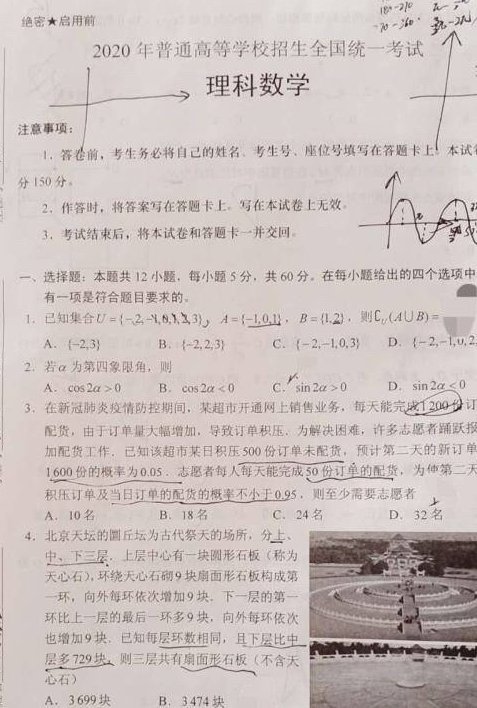 绝密★启用前
2020 年普通高等学校招生全国统一考试
理科数学
注意事项:
1. 答卷前,考生务必将自己的姓名、考生号、座位号填写在答题卡上。本试
分 150 分。
2. 作答时,将答案写在答题卡上。写在本试卷上无效。
3. 考试结束后,将本试卷和答题卡一并交回。
一、选择题:本题共 12 小题,每小题 5 分,共 60 分。在每小题给出的四个选项中
有一项是符合题目要求的。
1. 已知集合U={-2,-1,0,1,2,3}, A={-1,0,1}, B={1,2},则∁U(A∪B)=
A. {-2,3} B. {-2,2,3} C. {-2,-1,0,3} D. {-2,-1,0,2,
2. 若α为第四象限角,则
A. cos2α>0 B. cos2α<0 C. sin2α>0 D. sin2α<0
3. 在新冠肺炎疫情防控期间,某超市开通网上销售业务,每天能完成1200份订
配货,由于订单量大幅增加,导致订单积压.为解决困难,许多志愿者踊跃报
加配货工作.已知该超市某日积压500份订单未配货,预计第二天的新订单
1600份的概率为0.05.志愿者每人每天能完成50份订单的配货,为使第二天
积压订单及当日订单的配货的概率不小于0.95,则至少需要志愿者
A. 10名 B. 18名 C. 24名 D. 32名
4. 北京天坛的圜丘坛为古代祭天的场所,分上、
中、下三层.上层中心有一块圆形石板(称为
天心石),环绕天心石砌9块扇面形石板构成第
一环,向外每环依次增加9块.下一层的第一
环比上一层的最后一环多9块,向外每环依次
也增加9块.已知每层环数相同,且下层比中
层多729块,则三层共有扇面形石板(不含天
心石)
A. 3699块 B. 3474块